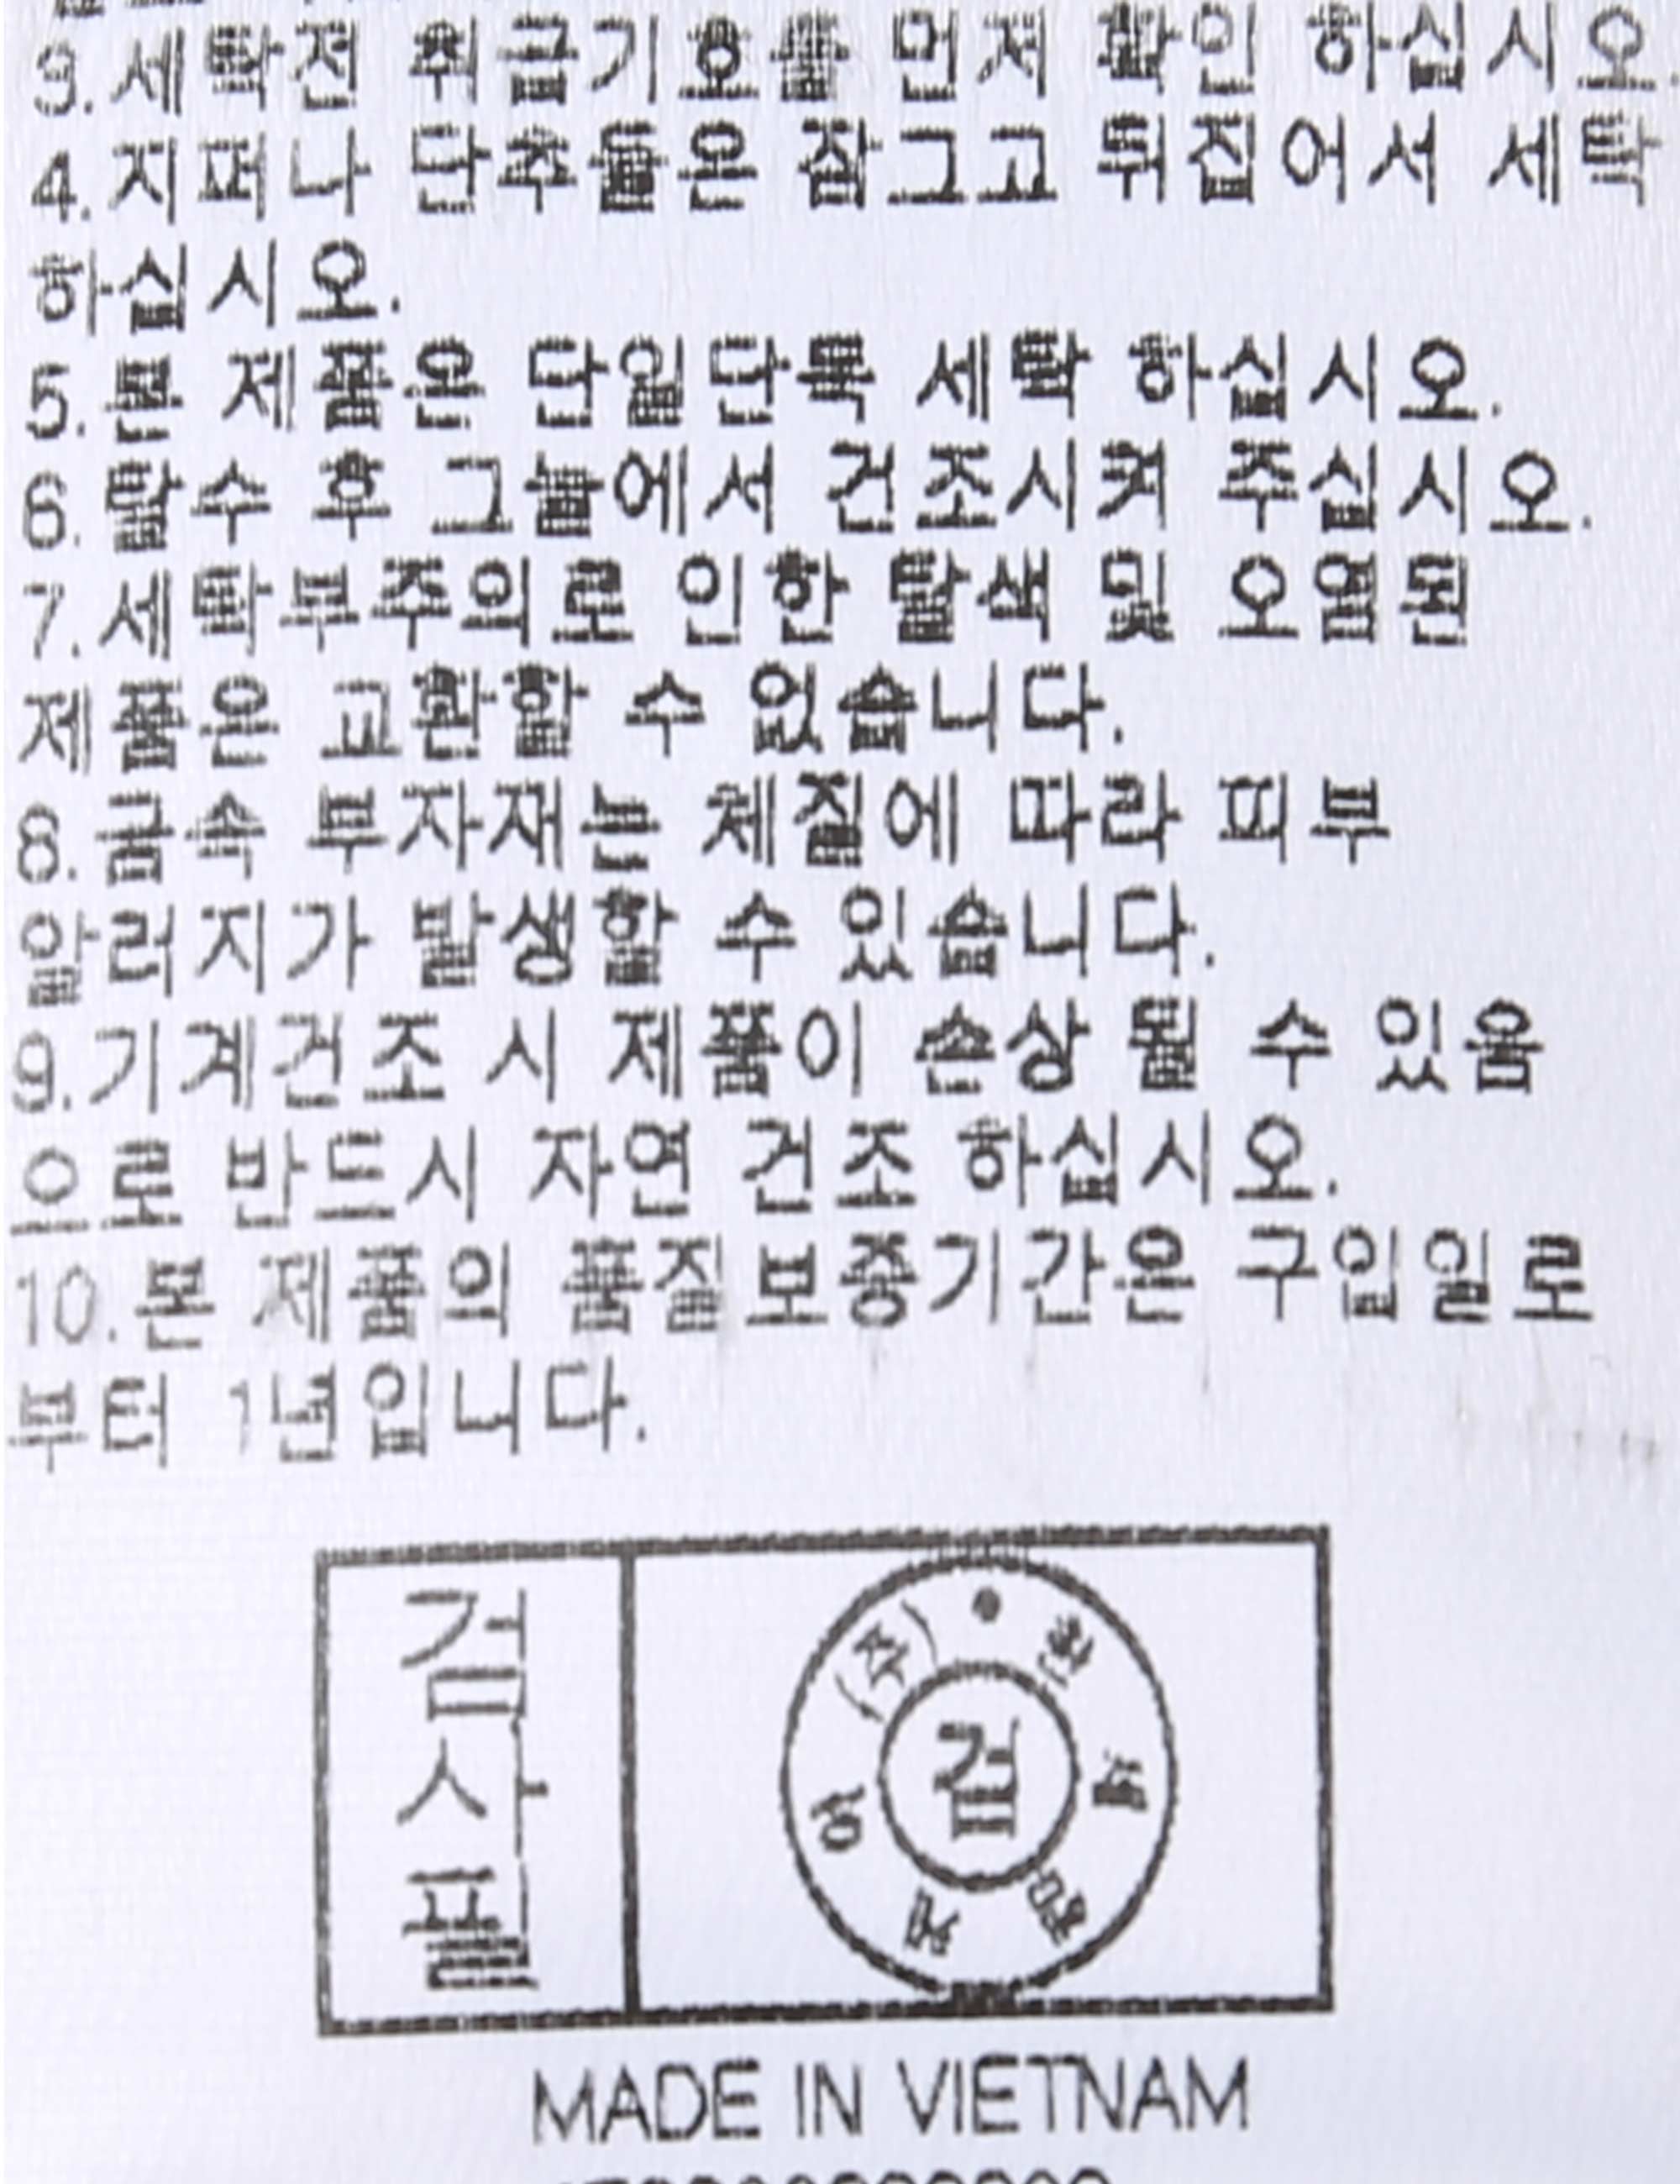 3.세탁전 취급기호를 먼저 확인 하십시오.
4.지퍼나 단추들은 잠그고 뒤집어서 세탁
하십시오.
5.본 제품은 단일단독 세탁 하십시오.
6.탈수 후 그늘에서 건조시켜 주십시오.
7.세탁부주의로 인한 탈색 및 오염된
제품은 교환할 수 없습니다.
8.금속 부자재는 체질에 따라 피부
알러지가 발생할 수 있습니다.
9.기계건조 시 제품이 손상 될 수 있음
으로 반드시 자연 건조 하십시오.
10.본 제품의 품질보증기간은 구입일로
부터 1년입니다.
검사필
(주)한세엠케이
검
MADE IN VIETNAM